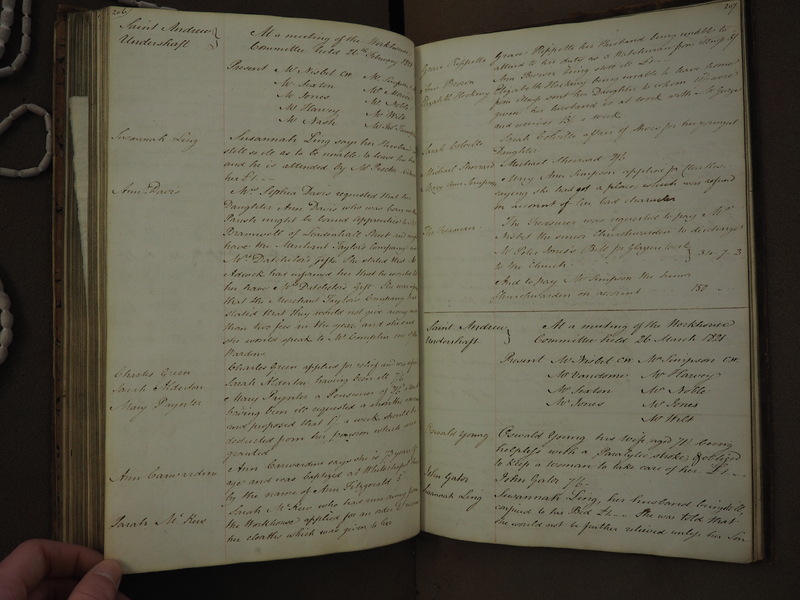 206
Saint Andrew
Undershaft
At a meeting of the Workhouse
Committee held 26th February 1821
Present Mr Nisbet CW Mr Simpson
Mr Sexton
Mr Jones Mr Noble
Mr Harvey Mr Wilt
Mr Nash
Susannah Ling
Susannah Ling says her Husband
still so ill as to be unable to leave his
and he is attended by Mr
her £1.--
Ann Davis
Mrs Sophia Davis requested that her
Daughter Ann Davis who was born in
Parish might be bound apprentice to
Bramwell of Leadenhall Street and
have the Merchant Taylor's Company
Mrs Datchelor's Gifts. She stated that Mr
had informed her that he would
her have Mrs Datchelor's Gift. She was
that the Merchant Taylor's Company has
stated that they would not give away more
than two fees in the year, and she said
she would speak to Mr Complin one of the
Wardens
Charles Green
Charles Green applied for relief and was
Sarah Alderton
Sarah Alderton having been ill 7/6
Mary Paynter
Mary Paynter a Pensioner of 7/6
having been ill requested a months
and proposed that 1/. a week should be
deducted from her pension which was
granted
Ann Carwardine
Ann Carwardine says she is 73 years of
age and was baptized at Whitechapel
by the name of Ann Fitzgerald 5
Sarah McKew
Sarah McKew who has run away from
the Workhouse applied for an order to
her cloaths which was given to her
207
Grace Peppette
Grace Peppette her Husband being unable to
attend to his duty as a Watchman from
Ann Brown
Ann Brown being still ill £1.--
Elizabeth Hocking
Elizabeth Hocking being unable to have home
from sent her Daughter to whom
given, her husband is at work with Mr George
and receives 15/. a week
Sarah Colville
Sarah Colville a Pair of Shoes for her youngest
Daughter
Michael Sherrard
Michael Sherrard 7/6
Mary Ann Simpson
Mary Ann Simpson applied for Cloathes
saying she had got a place, which was refused
on account of her bad character
The Treasurer
The Treasurer was requested to pay Mr
Nisbet the senior Churchwarden to discharge
Mr Peter Jones's Bill for Glaziers work
to the Church
34-7-3
And to pay Mr Simpson the Junior
Churchwarden on account 150 -
Saint Andrew
Undershaft
At a meeting of the Workhouse
Committee held 26 March 1821
Present Mr Nisbet CW Mr Simpson CW
Mr Vandome Mr Harvey
Mr Sexton Mr Noble
Mr Jones Mr Jones
Mr Wilt
Oswald Young
Oswald Young, his Wife aged 71 being
helpless with a Paralytic stroke & obliged
to keep a woman to take care of her £1.--
John Gator
John Gator 7/6-
Susannah Ling
Susannah Ling, her husband being still
confined to his Bed £1.-- She was told that
she would not be further relieved unless her Son